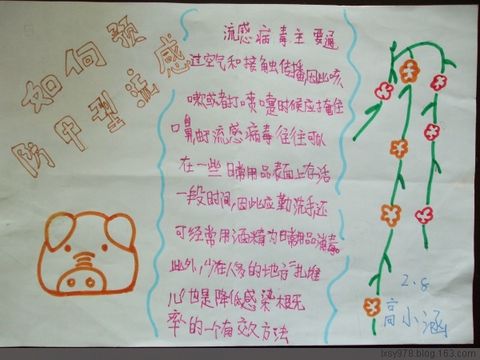 如何预
防甲型流感
流感病毒主要通
过空气和接触传播因此咳
嗽或者打喷嚏时候应掩住
口鼻流感病毒往往可以
在一些日常用品表面上存活
一段时间,因此应勤洗手还
可经常用酒精为日常用品消毒
此外,少在人多的地方扎堆
儿也是降低感染概
率的一个有效方法
2.8
高小涵
lxsy978.blog.163.com